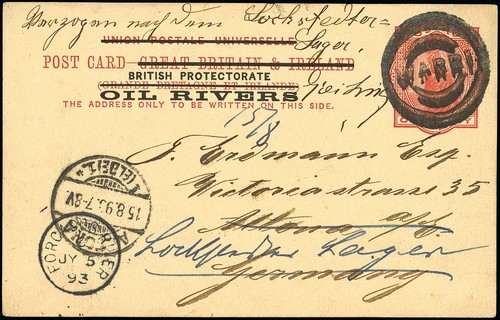 Verzogen nach dem Lockstedter=
Lager,
UNION POSTALE UNIVERSELLE
POST CARD GREAT BRITAIN & IRELAND
BRITISH PROTECTORATE
(GRANDE BRETAGNE ET IRLANDE)
OIL RIVERS
THE ADDRESS ONLY TO BE WRITTEN ON THIS SIDE.
WARRI
15/8
T. Erdmann Esq.
Victoria strasse 35
Altona
Lockstedter Lager
Germany
15.8.93.7-8V.
FORCADOS RIVER
JY 5
93